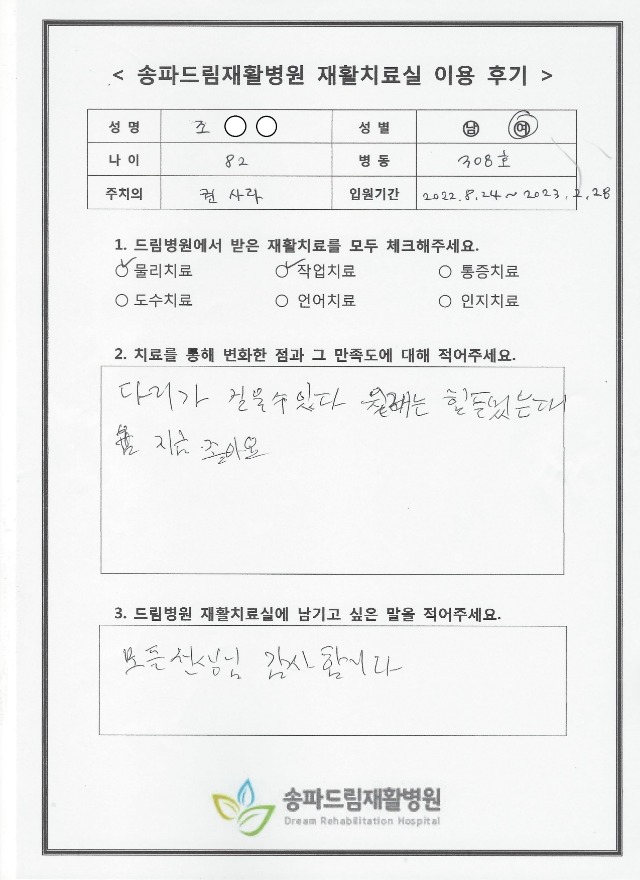 < 송파드림재활병원 재활치료실 이용 후기 >
성 명 조 ○ ○ 성 별 남 여
나 이 82 병 동 308호
주치의 권 사라 입원기간 2022.8.24 ~ 2023.2.28
1. 드림병원에서 받은 재활치료를 모두 체크해주세요.
물리치료 작업치료 통증치료
도수치료 언어치료 인지치료
2. 치료를 통해 변화한 점과 그 만족도에 대해 적어주세요.
다리가 걸을수있다 힘들었는데
지금 좋아요
3. 드림병원 재활치료실에 남기고 싶은 말을 적어주세요.
모든선생님 감사합니다
송파드림재활병원
Dream Rehabilitation Hospital